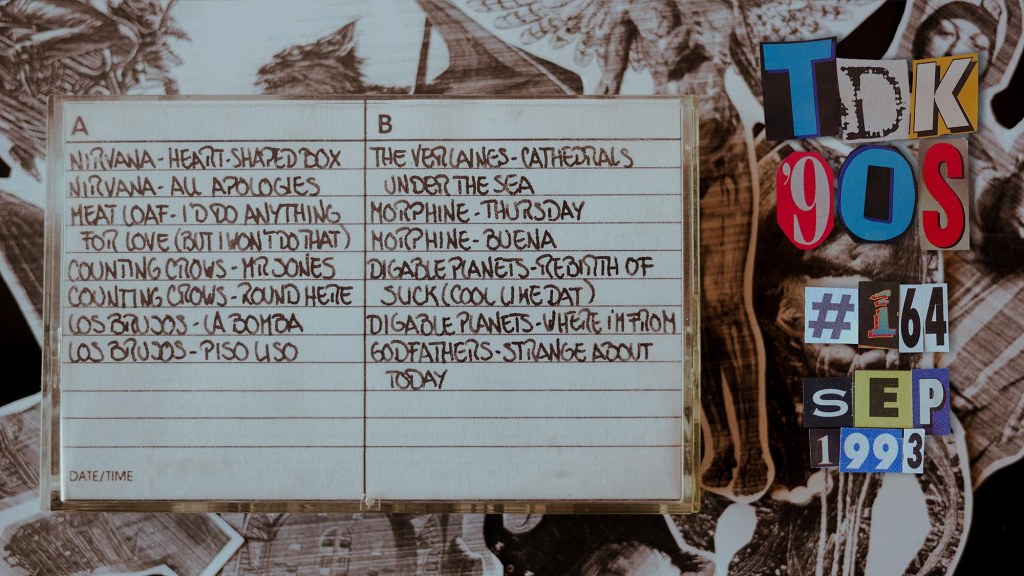 A
NIRVANA - HEART-SHAPED BOX
NIRVANA - ALL APOLOGIES
MEAT LOAF - I'D DO ANYTHING
FOR LOVE (BUT I WON'T DO THAT)
COUNTING CROWS - MR JONES
COUNTING CROWS - ROUND HERE
LOS BRUJOS - LA BOMBA
LOS BRUJOS - PISO LISO
DATE/TIME
B
THE VERLAINES - CATHEDRALS
UNDER THE SEA
MORPHINE - THURSDAY
MORPHINE - BUENA
DIGABLE PLANETS - REBIRTH OF
SLICK (COOL LIKE DAT)
DIGABLE PLANETS - WHERE I'M FROM
GODFATHERS - STRANGE ABOUT
TODAY
TDK
'90S
#164
SEP
1993